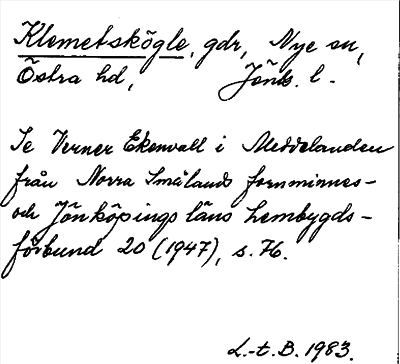 Klemetskögle, gdr, Nye sn,
Östra hd, Jönk. l.
Se Verner Ekenvall i Meddelanden
från Norra Smålands fornminnes-
och Jönköpings läns hembygds-
förbund 20 (1947), s. 76.
L.-t. B. 1983.